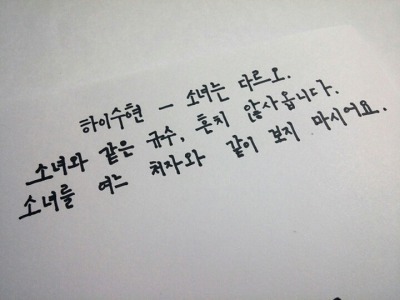 하이수현 – 소녀는 다르오.
소녀와 같은 규수, 흔치 않사옵니다.
소녀를 여느 처자와 같이 보지 마시어요.